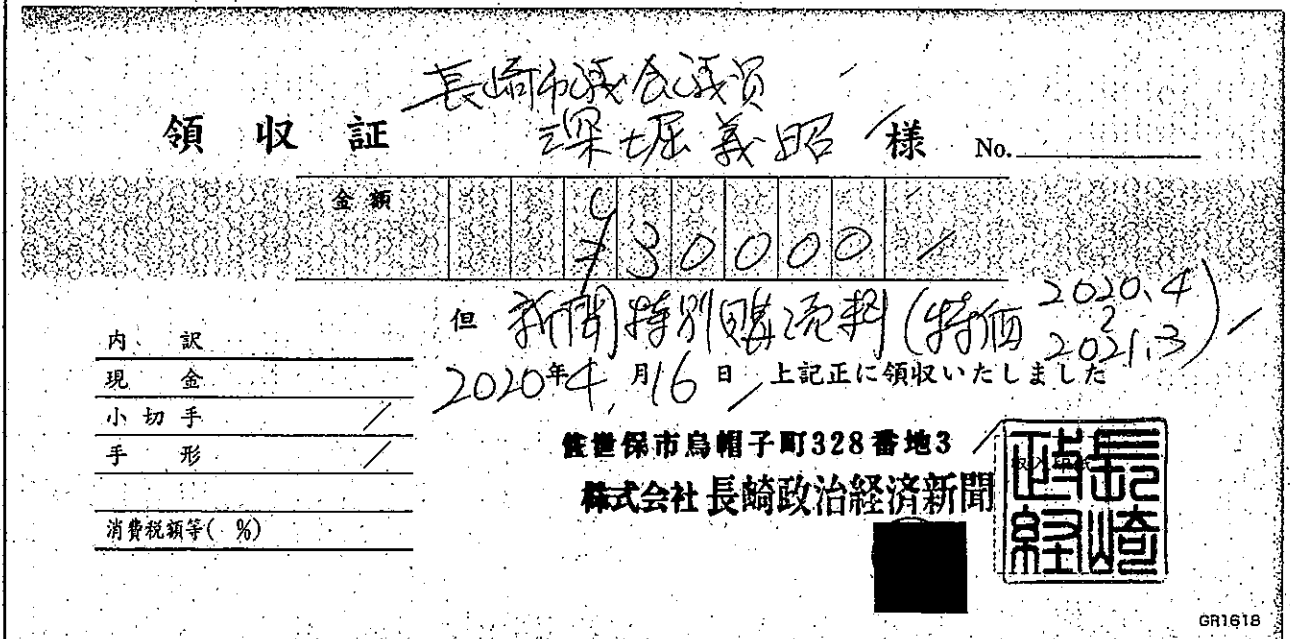 長崎市議会議員
領収証 深堀義昭 様 No.
金額 ¥30000
但 新聞特別購読料(特価 2020.4〜2021.3)
内訳
2020年4月16日 上記正に領収いたしました
現金
小切手
手形
佐世保市烏帽子町328番地3
株式会社 長崎政治経済新聞
消費税額等( %)
長崎政経
GR1618